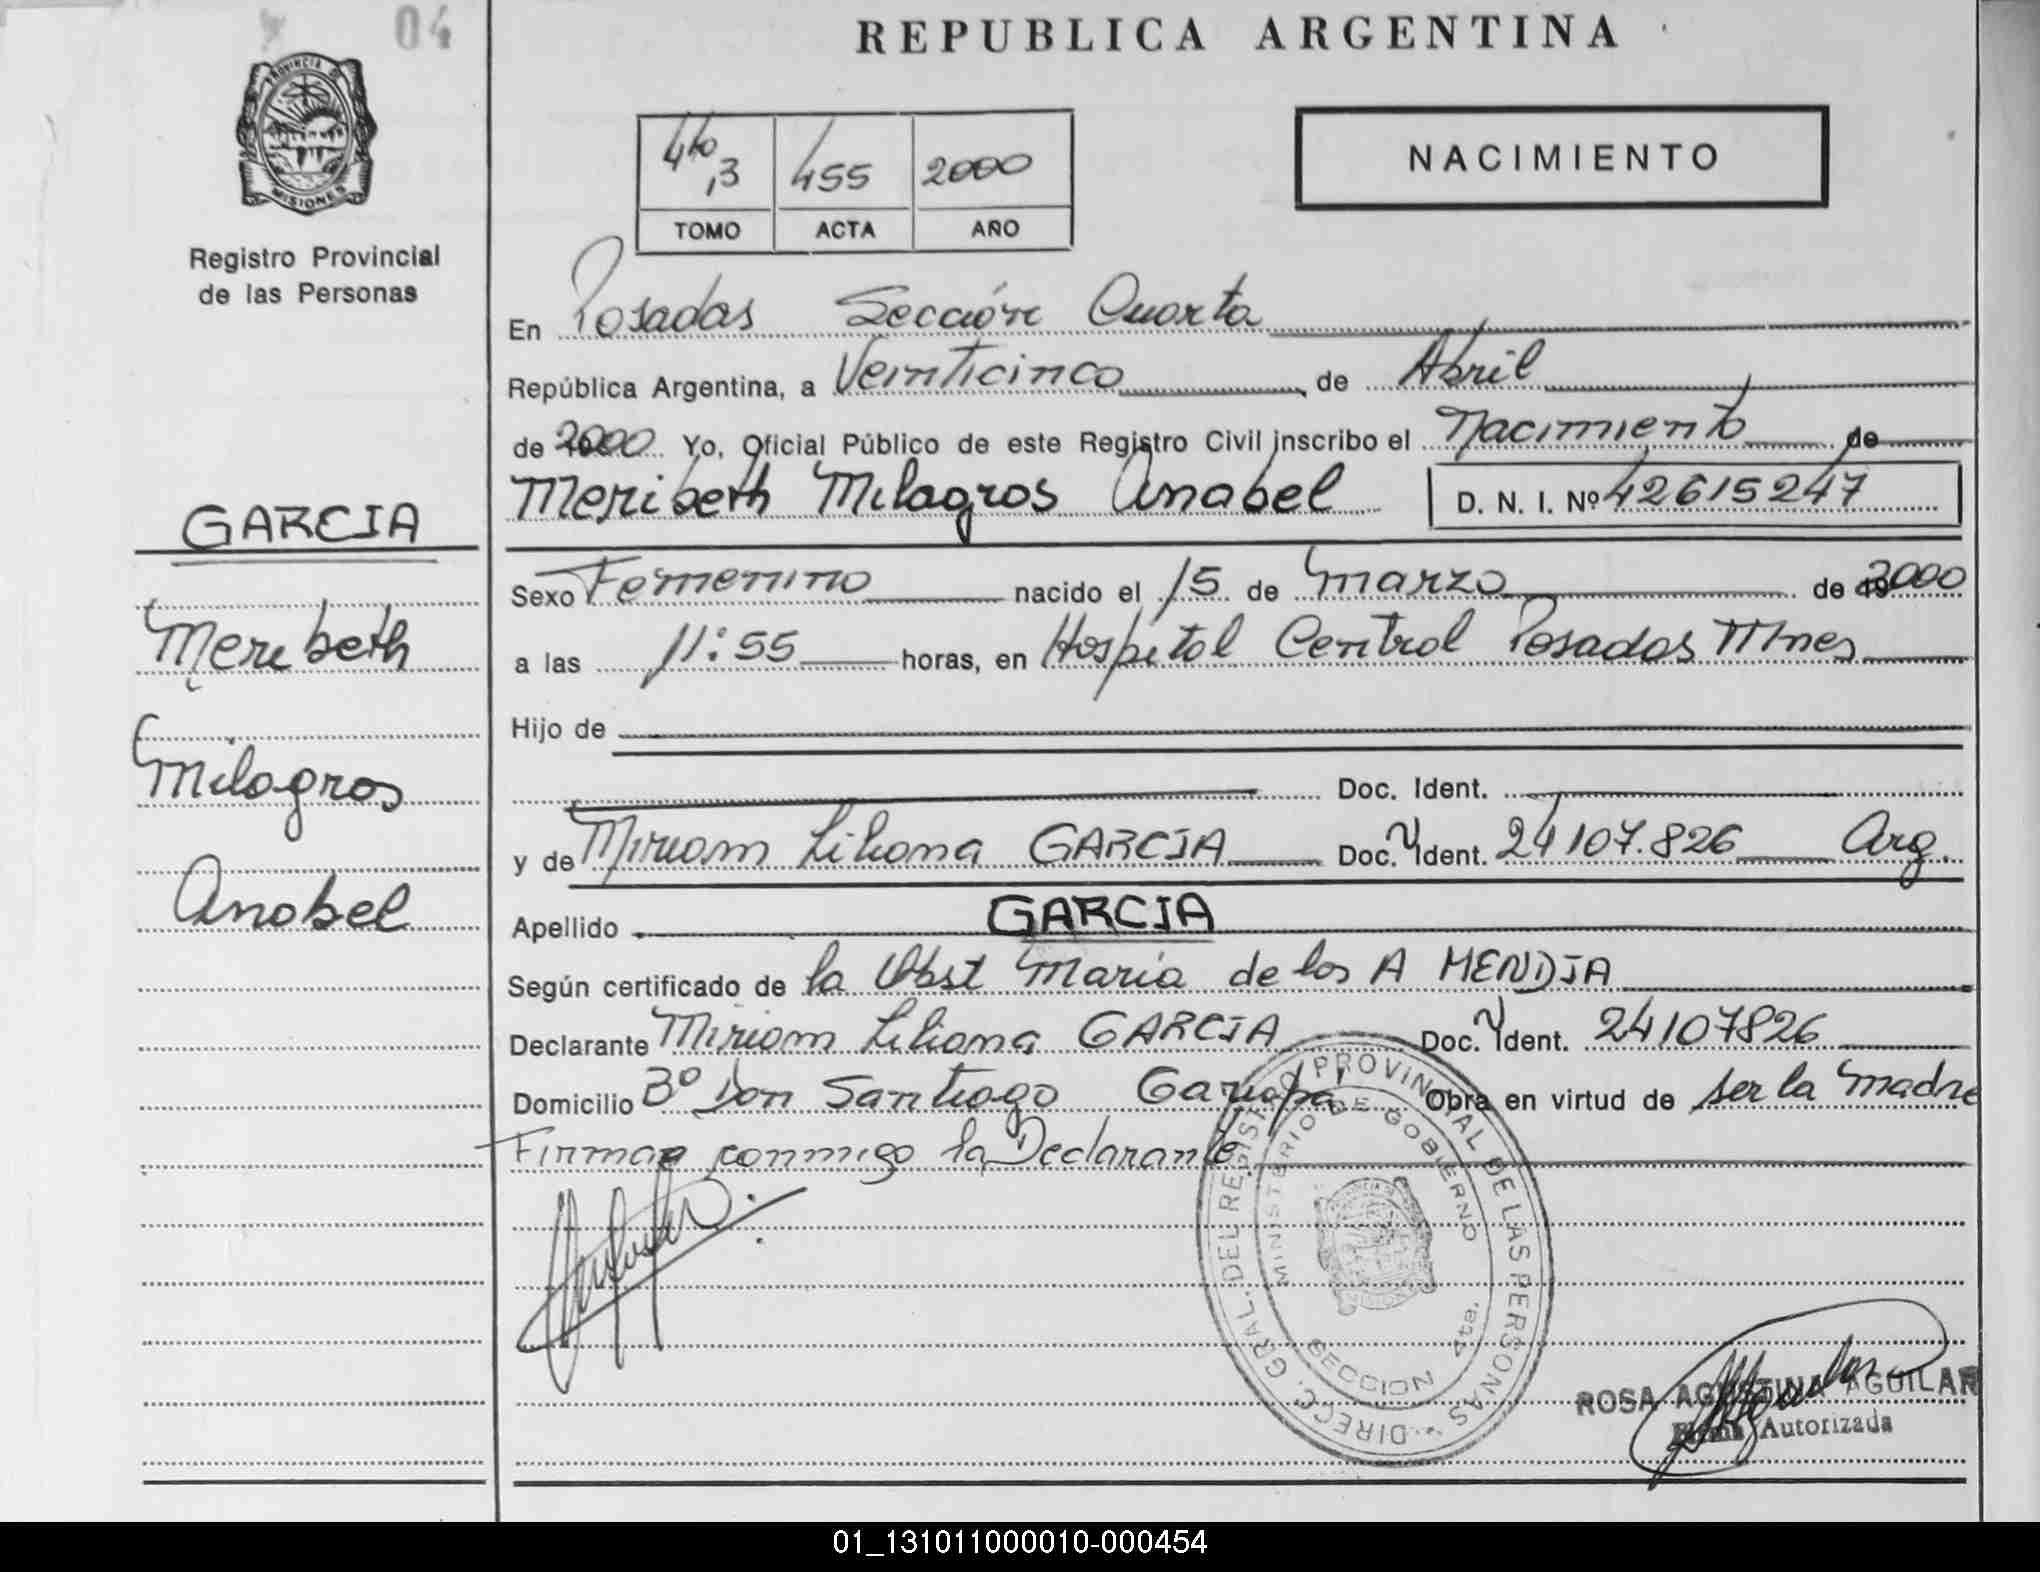 04
REPUBLICA ARGENTINA
PROVINCIA DE
MISIONES
Registro Provincial
de las Personas
4to ,3 455 2000
TOMO ACTA AÑO
NACIMIENTO
En Posadas Sección Cuarta
República Argentina, a Veinticinco de Abril
de 2000 Yo, Oficial Público de este Registro Civil inscribo el Nacimiento de
Meribeth Milagros Anabel D. N. I. Nº 42615247
GARCIA
Meribeth
Milagros
Anabel
Sexo Femenino nacido el 15 de marzo de 2000
a las 11:55 horas, en Hospital Central Posadas Mnes
Hijo de
Doc. Ident.
y de Miriam Liliana GARCIA Doc. Ident. 24107.826 Arg.
Apellido GARCIA
Según certificado de la Obst Maria de los A MENDIA
Declarante Miriam Liliana GARCIA Doc. Ident. 24107826
Domicilio Bº Don Santiago Garupá Obra en virtud de ser la madre
Firman conmigo la Declarante
DIRECC. GRAL. DEL REGISTRO PROVINCIAL DE LAS PERSONAS
MINISTERIO DE GOBIERNO
SECCION 4ta.
ROSA AGUSTINA AGUILAR
Firma Autorizada
01_131011000010-000454